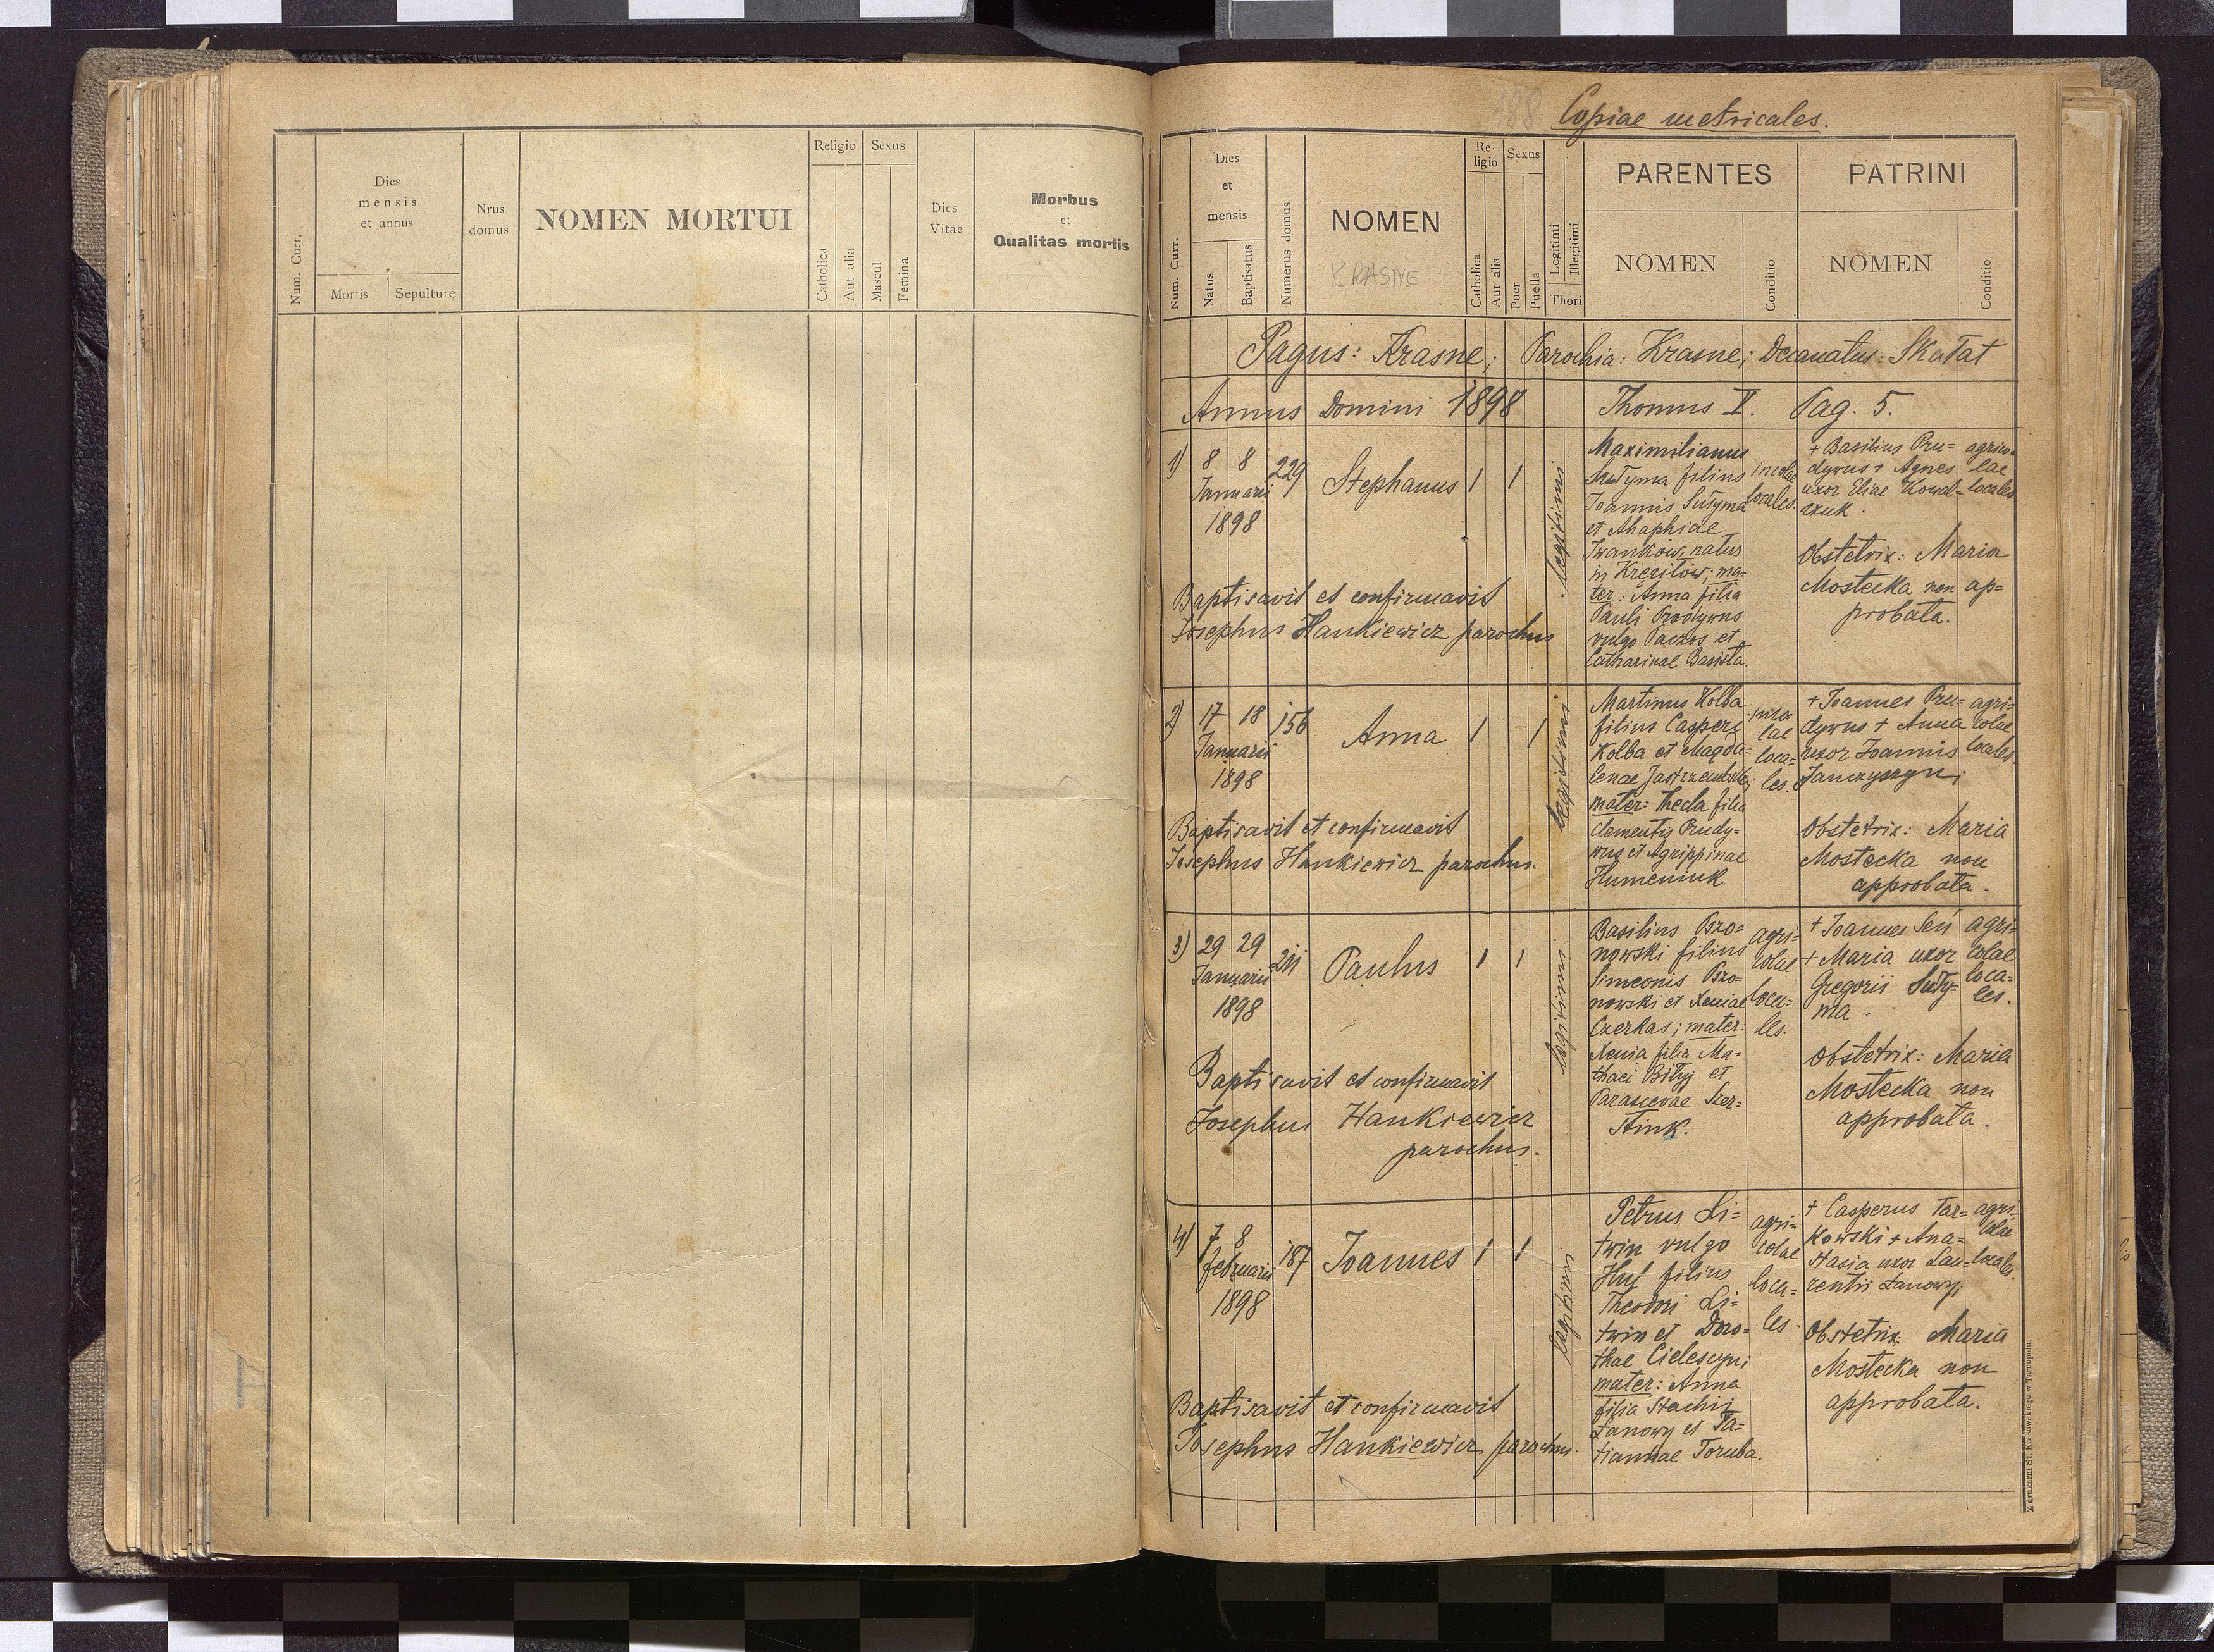 Num. Curr.
Dies
mensis
et annus
Mortis
Sepulture
Nrus
domus
NOMEN MORTUI
Religio
Catholica
Aut alia
Sexus
Mascul
Femina
Dies
Vitae
Morbus
et
Qualitas mortis
188
Copiae metricales.
Num. Curr.
Dies
et
mensis
Natus
Baptisatus
Numerus domus
NOMEN
KRASNE
Re-
ligio
Catholica
Aut alia
Sexus
Puer
Puella
Legitimi
Illegitimi
Thori
PARENTES
NOMEN
Conditio
PATRINI
NOMEN
Conditio
Pagus: Krasne; Parochia: Krasne; Decanatus: Skałat
Annus Domini 1898 Thomus I. Pag. 5.
1) 8 8 229 Stephanus 1 1
Januarii
1898
legitimi
Maximilianus
Sutyma filius
Joannis Sutyma
et Ahaphiae
Iwankow, natus
in Krezilów; ma=
ter: Anna filia
Pauli Prodywus
vulgo Paczos et
Catharinae Basista.
incolae
locales.
+ Basilius Pru=
dywus + Agnes
uxor Eliae Kowal=
czuk.
agrico-
lae
locales
Obstetrix: Maria
Mostecka non ap=
probata.
Baptisavit et confirmavit
Josephus Hankiewicz parochus
2) 17 18 156 Anna 1 1
Januarii
1898
legitimi
Martinus Kolba
filius Casperi
Kolba et Magda=
lenae
mater: Thecla filia
Clementis Prudy=
wus et Agrippinae
Humeniuk.
inco-
lae
loca=
les.
+ Joannes Pru=
dywus + Anna
uxor Joannis
Janczyszyn;
agri-
colae
locales.
Obstetrix: Maria
Mostecka non
approbata.
Baptisavit et confirmavit
Josephus Hankiewicz parochus.
3) 29 29 211 Paulus 1 1
Januarii
1898
legitimi
Basilius Brzo=
nowski filius
Simeonis Brzo=
nowski et Xeniae
Czerkas; mater:
Xenia filia Ma=
thaei Bilyj et
Parascevae Szer=
stiuk.
agri=
colae
loca=
les.
+ Joannes Seń
+ Maria uxor
Gregorii Suty=
ma.
agri=
colae
loca=
les.
Obstetrix: Maria
Mostecka non
approbata.
Baptisavit et confirmavit
Josephus Hankiewicz
parochus.
4) 7 8 187 Joannes 1 1
februarii
1898
legitimi
Petrus Li=
twin vulgo
filius
Theodori Li=
twin et Doro=
thae
mater: Anna
filia Stachii
Łanowy et Ta=
tiannae Toruba.
agri=
colae
loca=
les.
+ Casperus Tar=
kowski + Ana=
stasia uxor Lau=
rentii Łanowy;
agri-
colae
locales.
Obstetrix: Maria
Mostecka non
approbata.
Baptisavit et confirmavit
Josephus Hankiewicz parochus.
Z drukarni St. Kossowskiego w Tarnopolu.